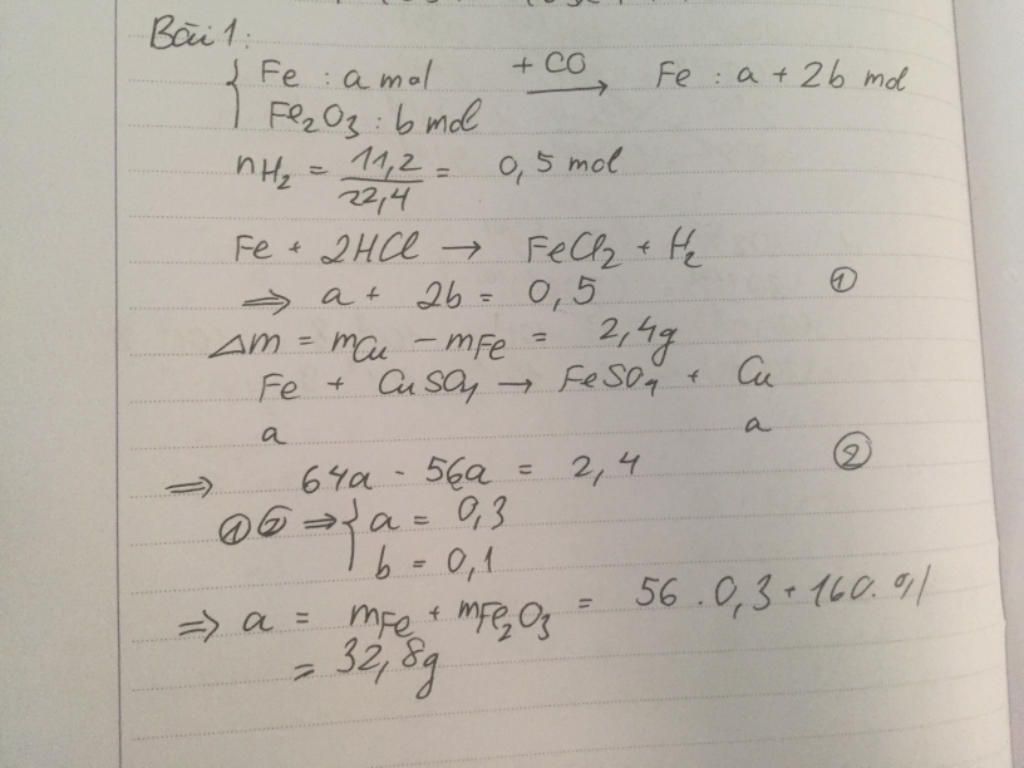 Bài 1:
{ Fe : a mol + CO → Fe : a + 2b mol
Fe2O3 : b mol
nH2 = 11,2/22,4 = 0,5 mol
Fe + 2HCl → FeCl2 + H2
⇒ a + 2b = 0,5 ①
Δm = mCu - mFe = 2,4g
Fe + CuSO4 → FeSO4 + Cu
a a
⇒ 64a - 56a = 2,4 ②
①② ⇒ { a = 0,3
b = 0,1
⇒ a = mFe + mFe2O3 = 56 . 0,3 + 160. 0,1
= 32,8g